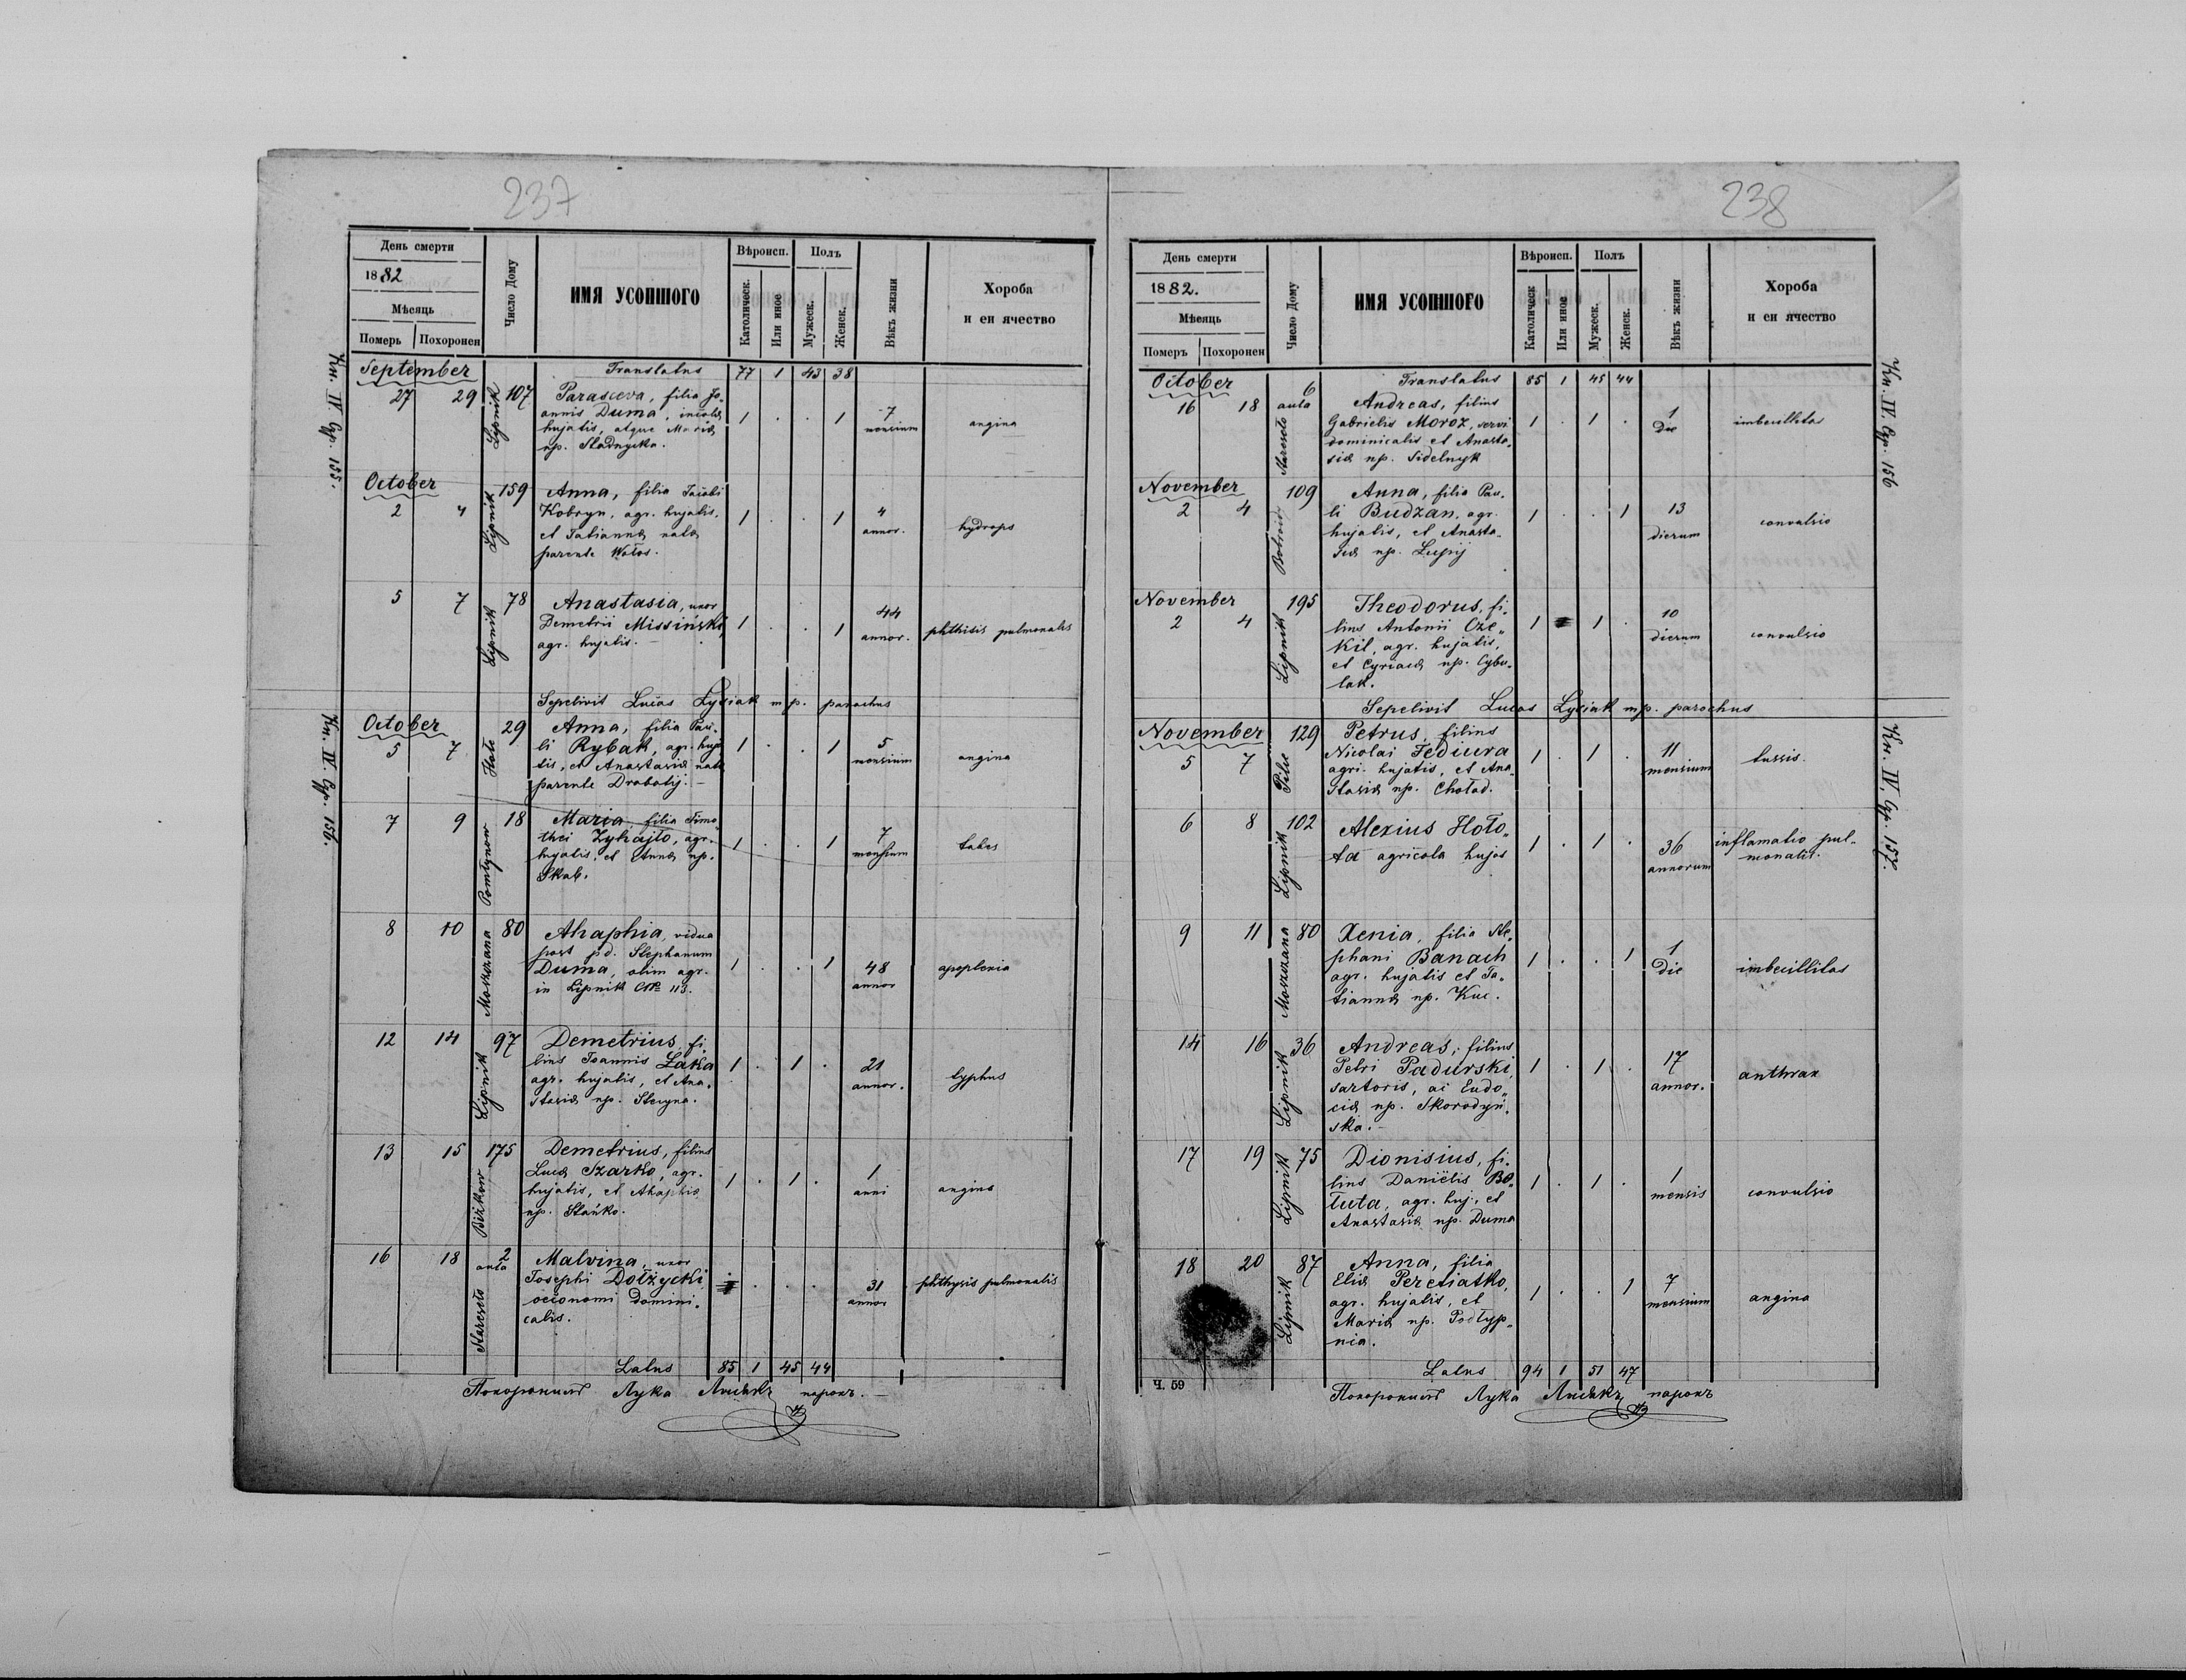 237
День смерти
1882
Мѣсяць
Померъ Похоронен
Число Дому
ИМЯ УСОПШОГО
Вѣроисп.
Католическ.
Или иное
Полъ
Мужеск.
Женск.
Вѣкъ жизни
Хороба
и еи ячество
Кн. IV. Стр. 155.
September Translatus 77 1 43 38
27 29 Lipnik 107 Parasceva, filia Jo-
annis Duma, incolæ
hujatis, atque Mariæ
np. Sladnycka.
1 . . 1 7 mensium angina
October
2 4 Lipnik 159 Anna, filia Jacobi
Kobryn, agr. hujatis,
et Tatiannæ natæ
parente Wołos.
1 . . 1 4 annor. hydrops
5 7 Lipnik 78 Anastasia, uxor
Demetrii Missiński,
agr. hujatis. —
1 . . 1 44 annor. phthisis pulmonalis
Sepelivit Lucas Łysiak mp. parochus
Кн. IV. Стр. 156.
October
5 7 Hołe 29 Anna, filia Pau-
li Rybak, agr. huja-
tis, et Anastasiæ natæ
parente Drobotij. —
1 . . 1 5 mensium angina
7 9 Pomłynow 18 Maria, filia Timo-
thei Zyhajło, agr.
hujatis, et Annæ np.
Skab.
1 . . 1 7 mensium tabes
8 10 Moszczana 80 Ahaphia, vidua
post pd. Stephanum
Duma, olim agr.
in Lipnik CNo 113.
1 . . 1 48 annor apoplexia
12 14 Lipnik 97 Demetrius, fi-
lius Joannis Łaka
agr. hujatis, et Ana-
stasiæ np. Steryna.
1 . 1 . 21 annor. typhus
13 15 Biżkow 175 Demetrius, filius
Lucæ Szarko, agr.
hujatis, et Ahaphiæ
np. Stańko.
1 . 1 . 1 anni angina
16 18 Staresełe 2 aula Malvina, uxor
Josephi Dołżycki,
oeconomi Domini-
calis.
. . . 31 annor phthysis pulmonalis
Latus 85 1 45 44
Похоронилъ Лука Лисякъ парохъ. —
238
День смерти
1882.
Мѣсяць
Померъ Похоронен
Число Дому
ИМЯ УСОПШОГО
Вѣроисп.
Католическ
Или иное
Полъ
Мужеск.
Женск.
Вѣкъ жизни
Хороба
и еи ячество
Кн. IV. Стр. 156
October Translatus 85 1 45 44
16 18 Staresełe 6 aula Andreas, filius
Gabrielis Moroz, servi
dominicalis et Anasta-
siæ np. Sidelnyk
1 . 1 . 1 die imbecillitas
November
2 4 109 Anna, filia Pau-
li Budzan, agr.
hujatis, et Anasta-
siæ np. Łupij
1 . . 1 13 dierum convulsio
November
2 4 Lipnik 195 Theodorus, fi-
lius Antonii Oże-
kil, agr. hujatis,
et Cyriacæ np. Cybu-
lak.
1 1 . 10 dierum convulsio
Sepelivit Lucas Łysiak mp. parochus
Кн. IV. Стр. 157.
November
5 7 Piłe 129 Petrus, filius
Nicolai Fediura
agri. hujatis, et Ana-
stasiæ np. Chołod.
1 . 1 . 11 mensium tussis.
6 8 Lipnik 102 Alexius Hoło-
ta agricola hujas
1 . 1 . 36 annorum inflamatio pul-
monalis.
9 11 Moszczana 80 Xenia, filia Ste-
phani Banach
agr. hujatis et Ta-
tiannæ np. Kuc.
1 . . 1 1 die imbecillitas
14 16 Lipnik 36 Andreas, filius
Petri Padurski,
sartoris, ac Eudo-
ciæ np. Skorodyń-
ska. —
1 . 1 . 17 annor. anthrax
17 19 Lipnik 75 Dionisius, fi-
lius Daniëlis Bo-
łuta, agr. huj., et
Anastasiæ np. Duma
1 . 1 . 1 mensis convulsio
18 20 Lipnik 87 Anna, filia
Eliæ Peretiatko,
agr. hujatis, et
Mariæ np. Podłyp-
nia.
1 . . 1 7 mensium angina
Latus 94 1 51 47
Ч. 59
Похоронилъ Лука Лисякъ парохъ